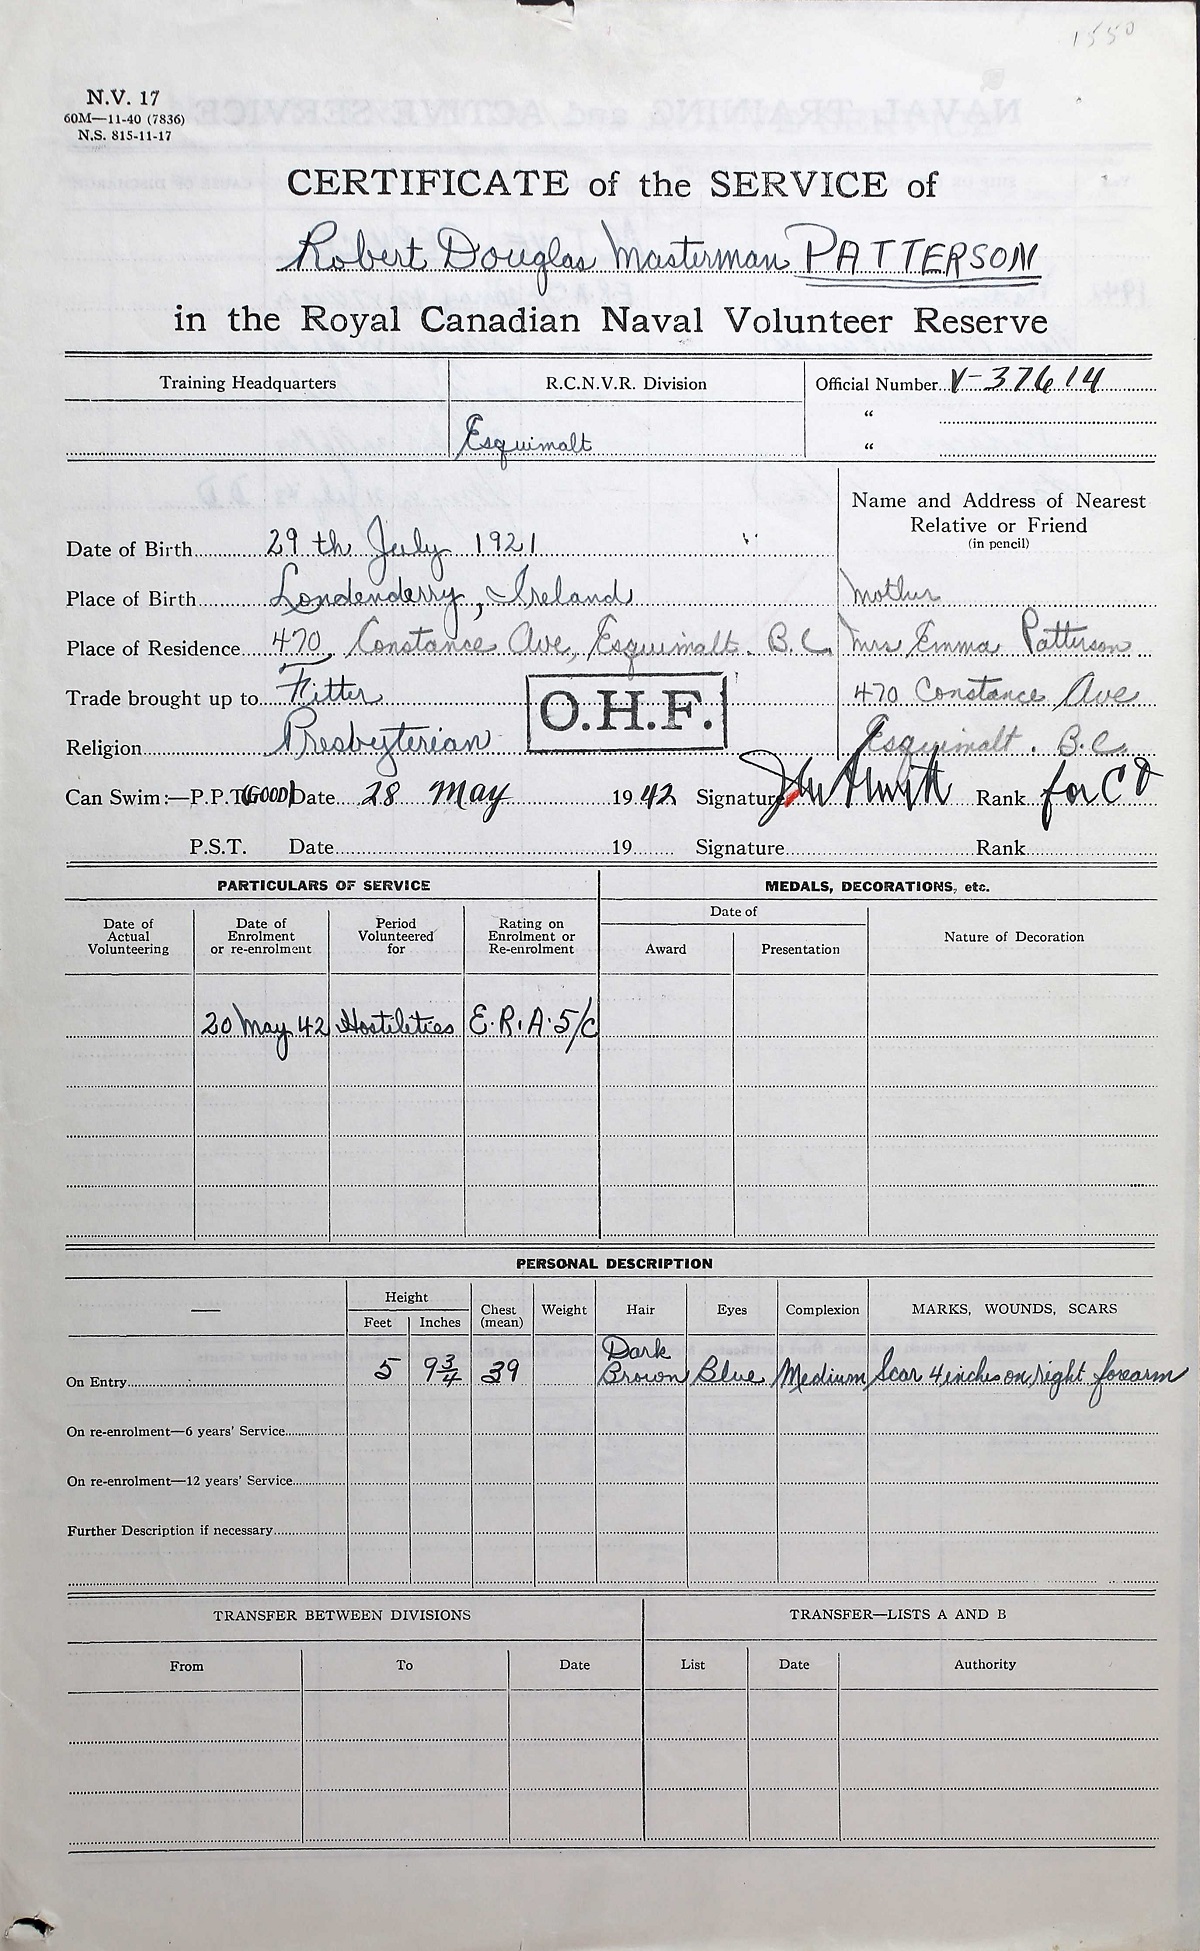 1550
N.V. 17
60M—11-40 (7836)
N.S. 815-11-17
CERTIFICATE of the SERVICE of
Robert Douglas Masterman PATTERSON
in the Royal Canadian Naval Volunteer Reserve
Training Headquarters
R.C.N.V.R. Division
Esquimalt
Official Number V-37614
“
“
Name and Address of Nearest
Relative or Friend
(in pencil)
Date of Birth 29th July 1921
Place of Birth Londenderry, Ireland
Mother
Place of Residence 470 Constance Ave, Esquimalt. B.C.
Mrs Emma Patterson
Trade brought up to Fitter
O.H.F.
470 Constance Ave
Religion Presbyterian
Esquimalt. B.C.
Can Swim:—P.P.T. (GOOD) Date 28 May 1942 Signature Rank for CO
P.S.T. Date 19 Signature Rank
PARTICULARS OF SERVICE
MEDALS, DECORATIONS, etc.
Date of
Actual
Volunteering
Date of
Enrolment
or re-enrolment
Period
Volunteered
for
Rating on
Enrolment or
Re-enrolment
Date of
Award
Presentation
Nature of Decoration
20 May 42 Hostilities E.R.A. 5/c
PERSONAL DESCRIPTION
—
Height
Feet
Inches
Chest
(mean)
Weight
Hair
Eyes
Complexion
MARKS, WOUNDS, SCARS
On Entry 5 9 3/4 39 Dark Brown Blue Medium Scar 4 inches on right forearm
On re-enrolment—6 years' Service
On re-enrolment—12 years' Service
Further Description if necessary
TRANSFER BETWEEN DIVISIONS
TRANSFER—LISTS A AND B
From
To
Date
List
Date
Authority